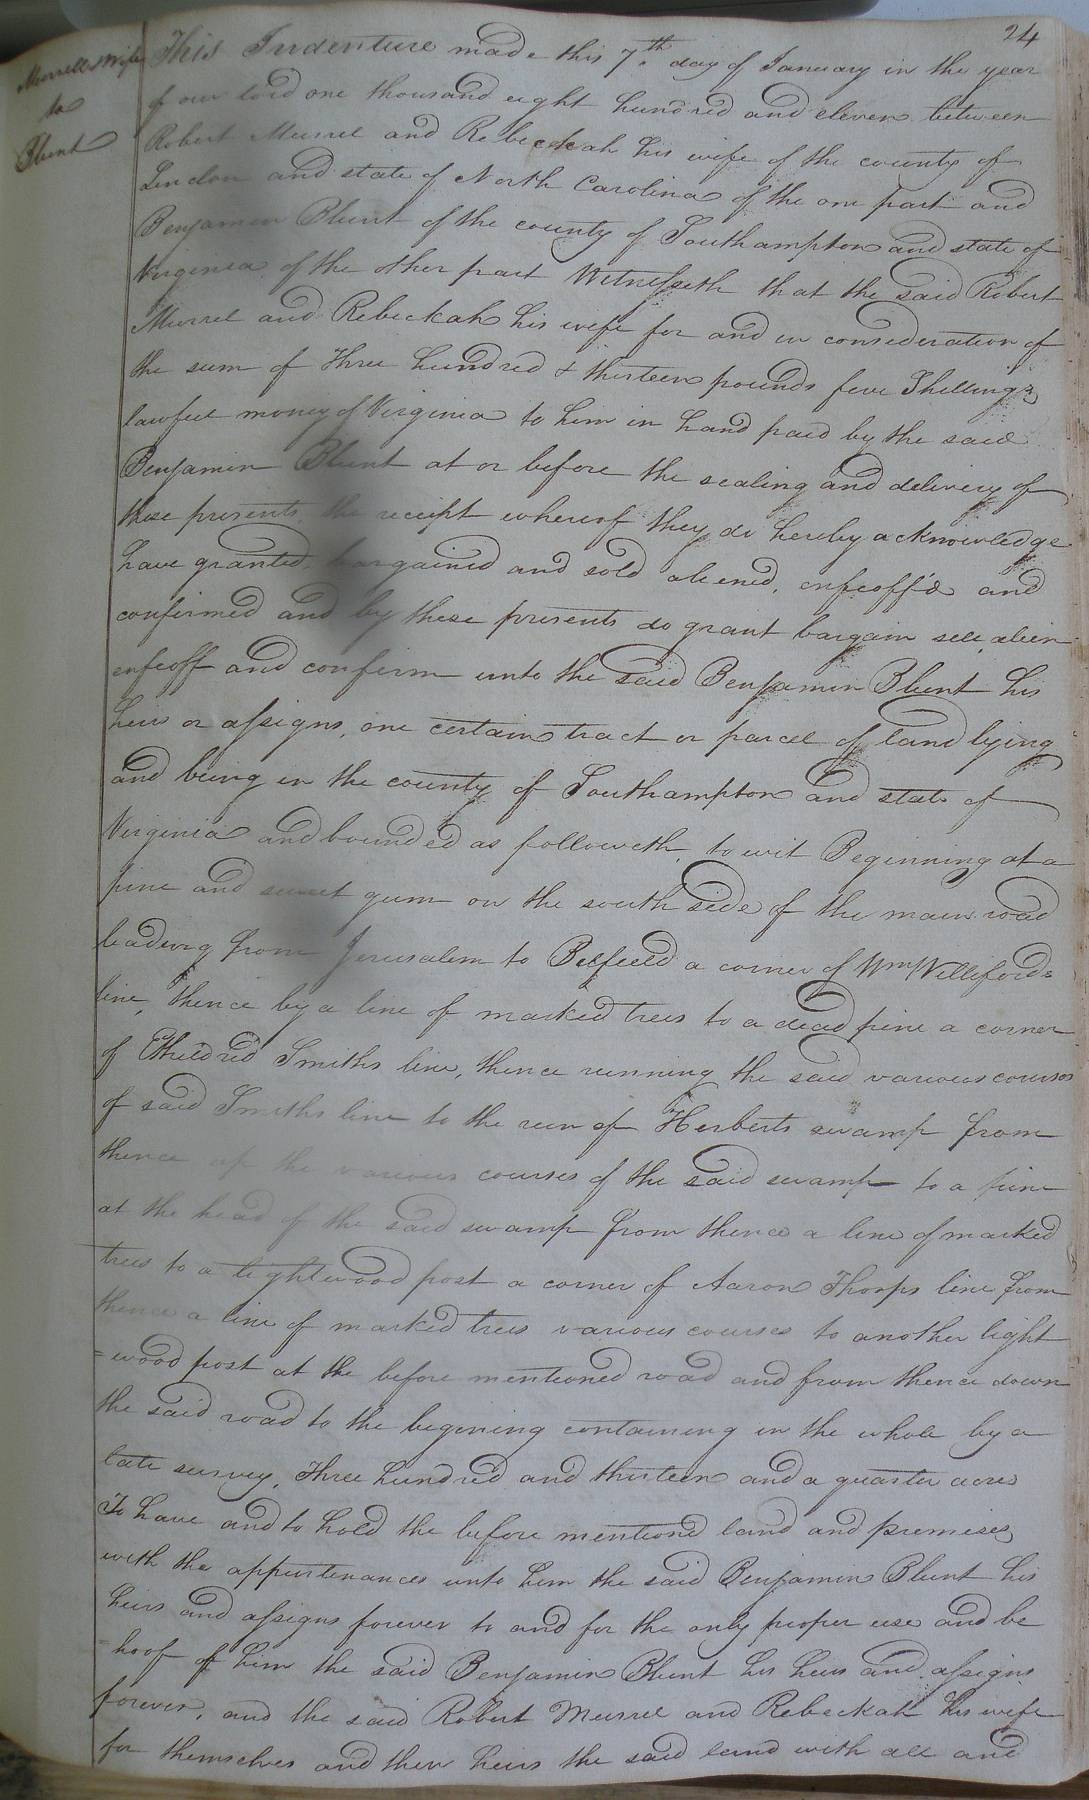 24
Murrel & Wife
to
Blunt
This Indenture made this 7th. day of January in the year
of our lord one thousand eight hundred and eleven between
Robert Murrel and Rebeckah his wife of the county of
and state of North Carolina of the one part and
Benjamin Blunt of the county of Southampton and state of
Virginia of the other part Witnesseth that the said Robert
Murrel and Rebeckah his wife for and in consideration of
the sum of Three hundred & thirteen pounds five Shillings
lawful money of Virginia to him in hand paid by the said
Benjamin Blunt at or before the sealing and delivery of
these presents, the receipt whereof they do hereby acknowledge
have granted, bargained and sold aliened, enfeoff'd and
confirmed and by these presents do grant bargain sell, alien
enfeoff and confirm unto the said Benjamin Blunt his
heirs or assigns, one certain tract or parcel of land lying
and being in the county of Southampton and state of
Virginia and bounded as followeth, to wit Beginning at a
pine and sweet gum on the south side of the main road
leading from Jerusalem to Belfield a corner of Wm Willifords
line, thence by a line of marked trees to a dead pine a corner
of Etheldred Smiths line, thence running the said various courses
of said Smiths line to the run of Herberts swamp from
thence up the various courses of the said swamp to a pine
at the head of the said swamp from thence a line of marked
trees to a lightwood post a corner of Aaron Thorps line from
thence a line of marked trees various courses to another light
=wood post at the before mentioned road and from thence down
the said road to the begining containing in the whole by a
late survey, Three hundred and thirteen and a quarter acres
To have and to hold the before mentioned land and premises
with the appurtenances unto him the said Benjamin Blunt his
heirs and assigns forever to and for the only proper use and be
=hoof of him the said Benjamin Blunt his heirs and assigns
forever, and the said Robert Murrel and Rebeckah his wife
for themselves and their heirs the said land with all and